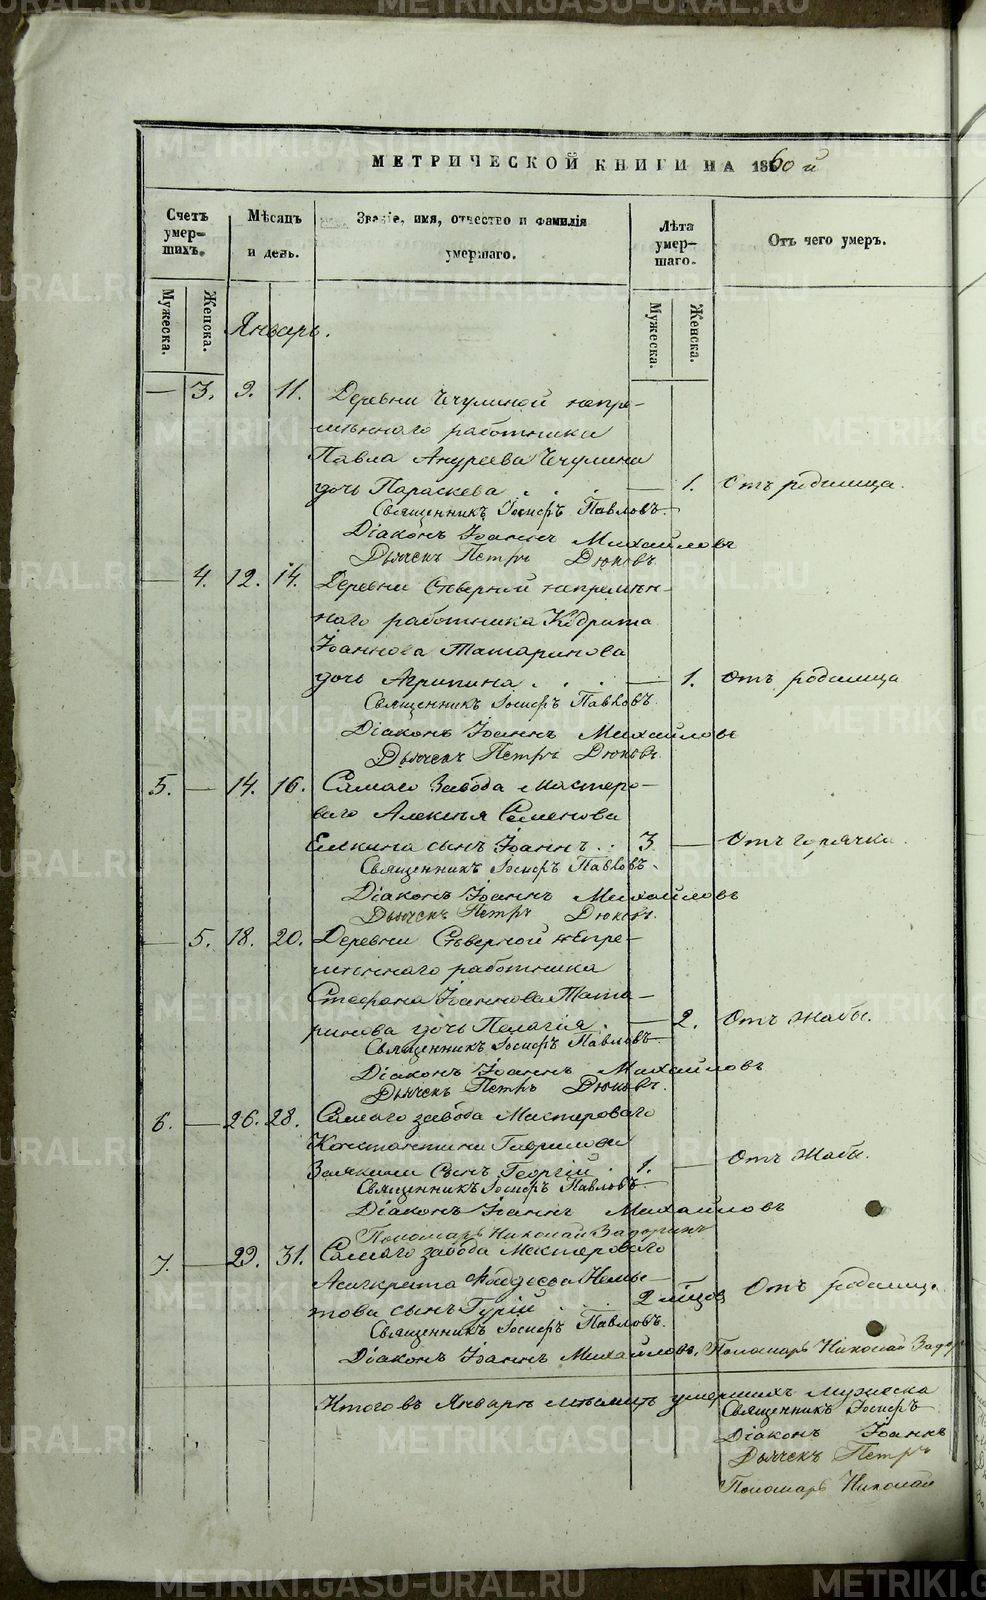 МЕТРИЧЕСКОЙ КНИГИ НА 1860 й
Счетъ умер=шихъ.
Мѣсяцъ и день.
Званіе, имя, отчество и фамилія умершаго.
Лѣта умер=шаго.
Отъ чего умеръ.
Мужеска.
Женска.
Мужеска.
Женска.
Январь.
— 3. 9. 11. Деревни Чечулиной непре-
мѣннаго работника
Павла Андреева Чечулина
дочь Параскева . . . — 1. Отъ родимца.
Священникъ Іосифъ Павловъ.
Діаконъ Іоаннъ Михайловъ
Дьячекъ Петръ Дюковъ.
— 4. 12. 14. Деревни Сѣверной непремѣн-
наго работника Кодрата
Іоаннова Татаринова
дочь Агрипина . . . — 1. Отъ родимца
Священникъ Іосифъ Павловъ.
Діаконъ Іоаннъ Михайловъ
Дьячекъ Петръ Дюковъ.
5. — 14. 16. Самаго Завода мастеро-
ваго Алексѣя Семенова
Елкина сынъ Іоаннъ . . 3 — Отъ горячки.
Священникъ Іосифъ Павловъ.
Діаконъ Іоаннъ Михайловъ
Дьячекъ Петръ Дюковъ.
— 5. 18. 20. Деревни Сѣверной непре-
мѣннаго работника
Стефана Іоаннова Тата-
ринова дочь Пелагія . — 2. Отъ жабы.
Священникъ Іосифъ Павловъ.
Діаконъ Іоаннъ Михайловъ
Дьячекъ Петръ Дюковъ.
6. — 26. 28. Самаго завода Мастероваго
Константина Гаврилова
Заякина Сынъ Георгій . 1. — Отъ Жабы.
Священникъ Іосифъ Павловъ.
Діаконъ Іоаннъ Михайловъ
Пономарь Николай Задоринъ
7. — 29. 31. Самаго завода Мастероваго
Асигкрита Фаддеева
това сынъ Гурій . . 2 мѣсяц Отъ родимц.
Священникъ Іосифъ Павловъ.
Діаконъ Іоаннъ Михайловъ, Пономарь Николай Задор
Итого въ Январѣ мѣсяцѣ умершихъ мужеска
Священникъ Іосифъ
Діаконъ Іоаннъ
Дьячекъ Петръ
Пономарь Николай
METRIKI.GASO-URAL.RU